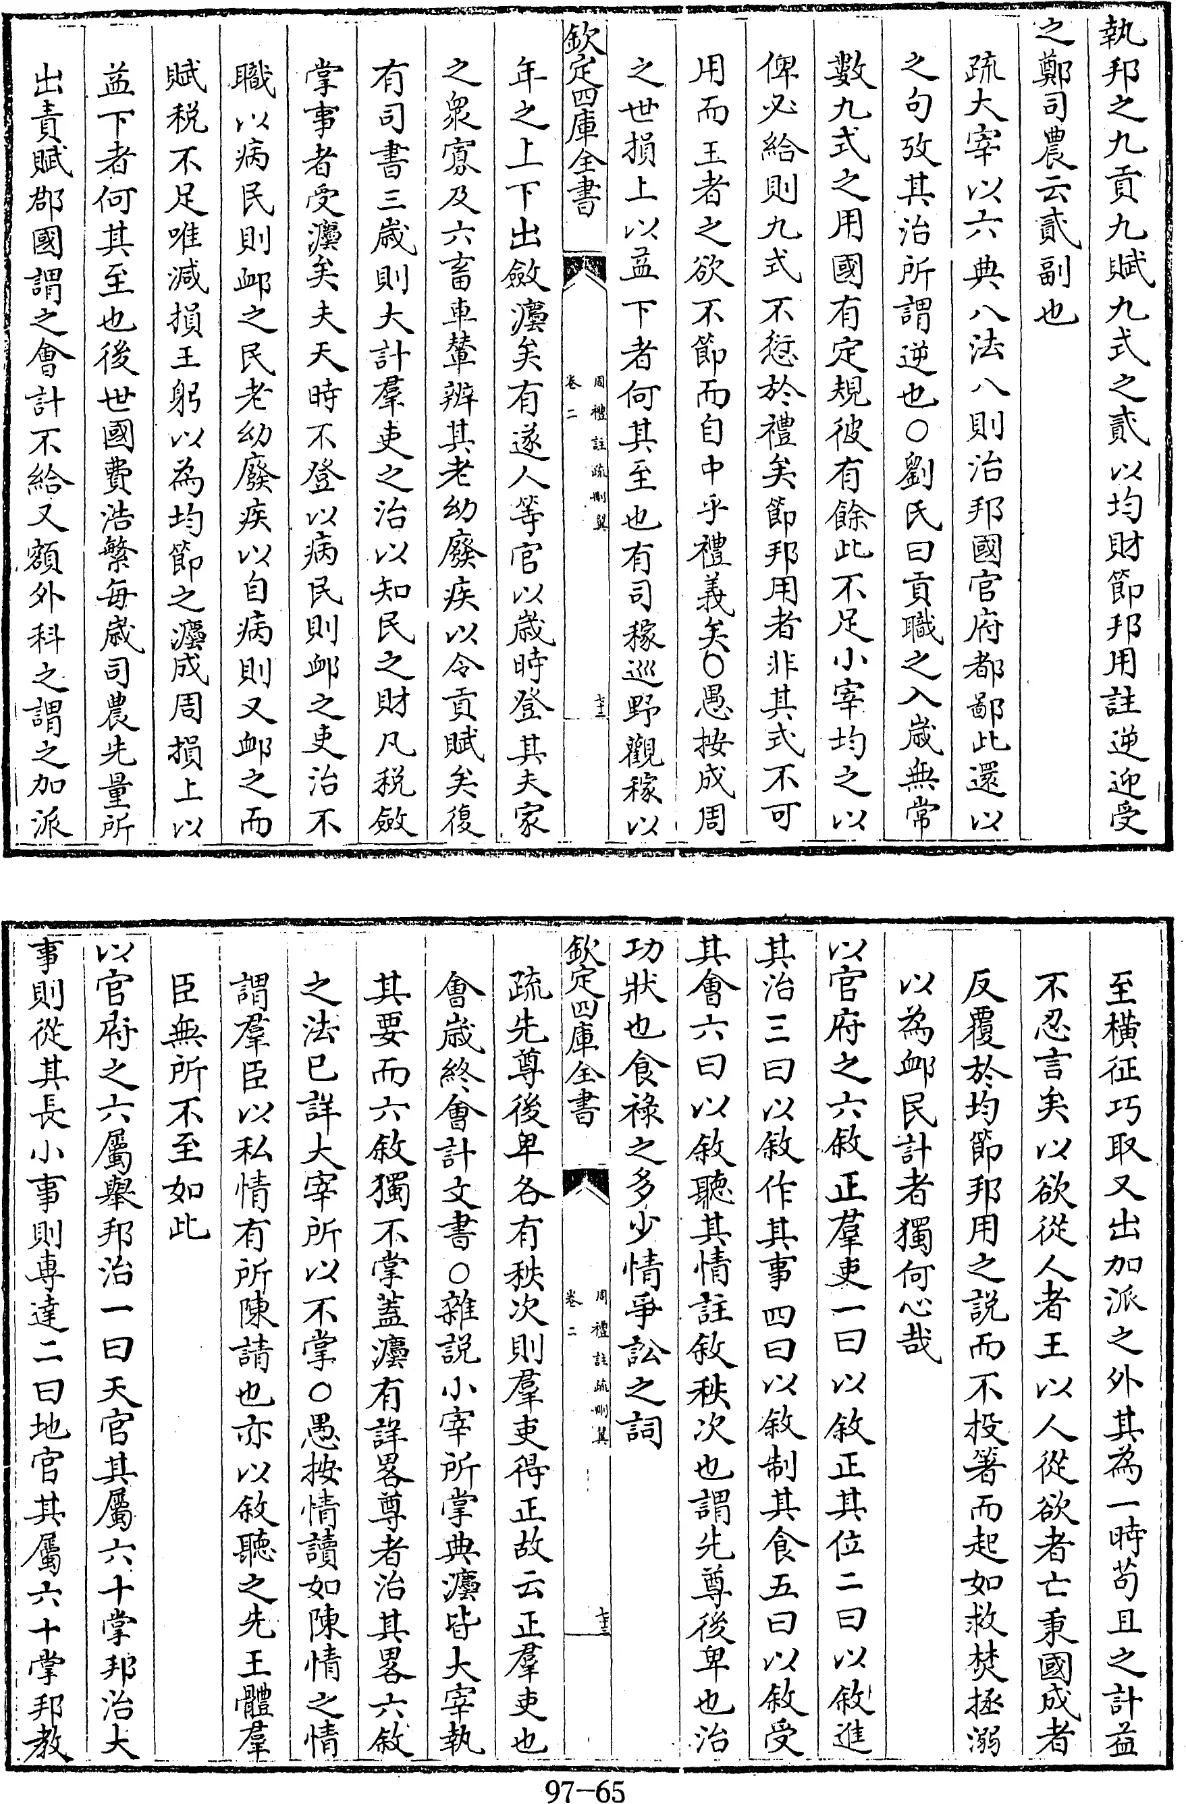 執邦之九貢九賦九式之貳以均財節邦用註逆迎受
之鄭司農云貳副也
疏大宰以六典八法八則治邦國官府都鄙此還以
之句攷其治所謂逆也○劉氏曰貢職之入歲無常
數九式之用國有定規彼有餘此不足小宰均之以
俾必給則九式不愆於禮矣節邦用者非其式不可
用而王者之欲不節而自中乎禮義矣○愚按成周
之世損上以益下者何其至也有司稼巡野觀稼以
欽定四庫全書
周禮註疏刪翼
卷二
年之上下出斂灋矣有遂人等官以歲時登其夫家
之衆寡及六畜車輦辨其老幼廢疾以令貢賦矣復
有司書三歲則大計羣吏之治以知民之財凡稅斂
掌事者受灋矣夫天時不登以病民則衈之吏治不
職以病民則衈之民老幼廢疾以自病則又衈之而
賦稅不足唯減損王躬以為均節之灋成周損上以
益下者何其至也後世國費浩繁每歲司農先量所
出責賦郡國謂之會計不給又額外科之謂之加派
至橫征巧取又出加派之外其為一時苟且之計益
不忍言矣以欲從人者王以人從欲者亡秉國成者
反覆於均節邦用之說而不投箸而起如救焚拯溺
以為衈民計者獨何心哉
以官府之六敘正羣吏一曰以敘正其位二曰以敘進
其治三曰以敘作其事四曰以敘制其食五曰以敘受
其會六曰以敘聽其情註敘秩次也謂先尊後卑也治
功狀也食祿之多少情爭訟之詞
欽定四庫全書
周禮註疏刪翼
卷二
疏先尊後卑各有秩次則羣吏得正故云正羣吏也
會歲終會計文書○雜說小宰所掌典灋皆大宰執
其要而六敘獨不掌蓋灋有詳畧尊者治其畧六敘
之法已詳大宰所以不掌○愚按情讀如陳情之情
謂羣臣以私情有所陳請也亦以敘聽之先王體羣
臣無所不至如此
以官府之六屬舉邦治一曰天官其屬六十掌邦治大
事則從其長小事則專達二曰地官其屬六十掌邦教
97-65